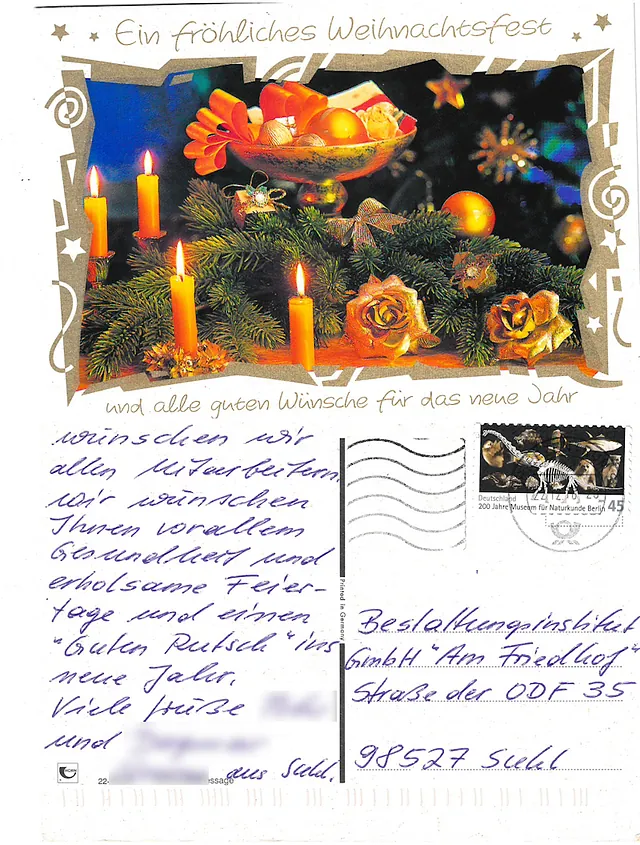 Ein fröhliches Weihnachtsfest
und alle guten Wünsche für das neue Jahr
wünschen wir
allen Mitarbeitern.
Wir wünschen
Ihnen vorallem
Gesundheit und
erholsame Feier-
tage und einen
"Guten Rutsch" ins
neue Jahr.
Viele Grüße
und
aus Suhl.
22-
Printed in Germany
Deutschland
200 Jahre Museum für Naturkunde Berlin 45
Bestattungsinstitut
GmbH "Am Friedhof"
Straße der ODF 35
98527 Suhl